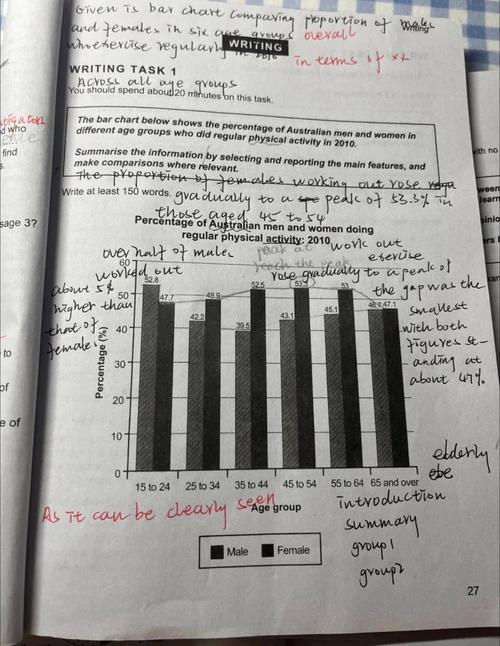 Given is bar chart comparing proportion of males
and females in six age groups overall
who exercise regularly in 2010
WRITING
in terms of xx
WRITING TASK 1
Across all age groups
You should spend about 20 minutes on this task.
The bar chart below shows the percentage of Australian men and women in
different age groups who did regular physical activity in 2010.
Summarise the information by selecting and reporting the main features, and
make comparisons where relevant.
The proportion of females working out rose
Write at least 150 words.
gradually to a peak of 53.3% in
those aged 45 to 54
Percentage of Australian men and women doing
regular physical activity: 2010
over half of males
worked out
peak at
reach the peak
work out
exercise
rose gradually to a peak of
about 5%
higher than
that of
females
the gap was the
smallest
with both
figures st-
anding at
about 47%
Percentage (%)
60
50
40
30
20
10
0
52.8
47.7
42.2
48.9
39.5
52.5
43.1
53.3
45.1
53
46.7
47.1
15 to 24
25 to 34
35 to 44
45 to 54
55 to 64
65 and over
Age group
elderly
As it can be clearly seen
Male
Female
introduction
summary
group1
group2
27
sage 3?
d who
find
to
of
e of